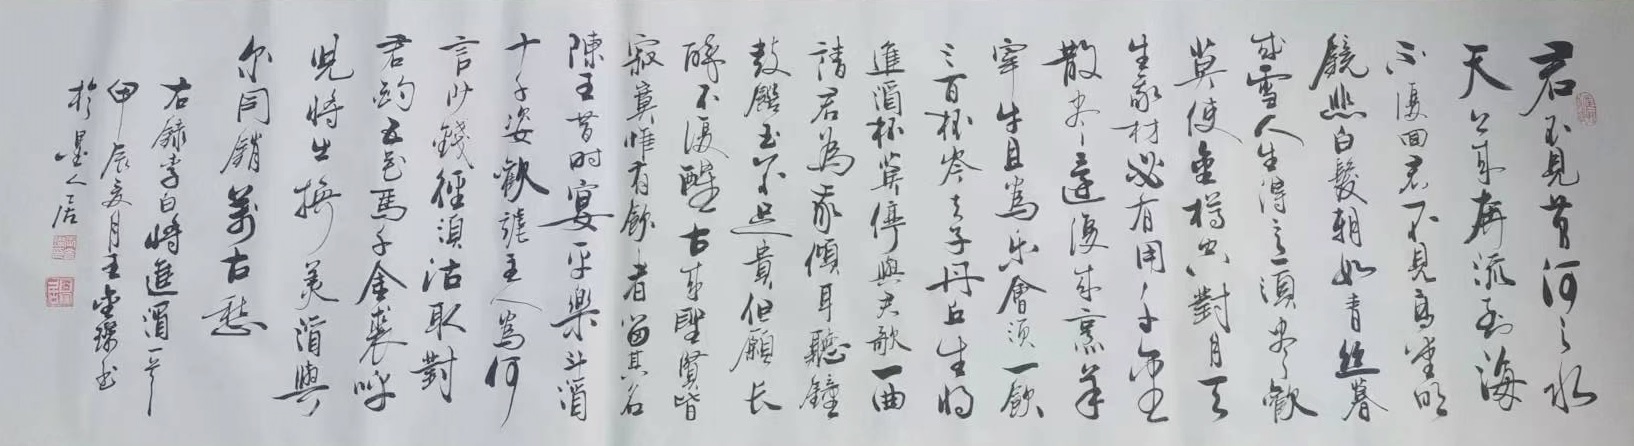 君不見黄河之水
天上來奔流到海
不復回君不見高堂明
鏡悲白髮朝如青絲暮
成雪人生得意須盡歡
莫使金樽空對月天
生我材必有用千金
散盡還復來烹羊
宰牛且為樂會須一飲
三百杯岑夫子丹丘生將
進酒杯莫停與君歌一曲
請君為我傾耳聽鐘
鼓饌玉不足貴但願長
醉不復醒古來聖賢皆
寂寞惟有飲者留其名
陳王昔時宴平樂斗酒
十千恣歡謔主人為何
言少錢徑須沽取對
君酌五花馬千金裘呼
兒將出換美酒與
尔同銷萬古愁
右錄李白將進酒一首
甲辰夏月王金書
於墨人居